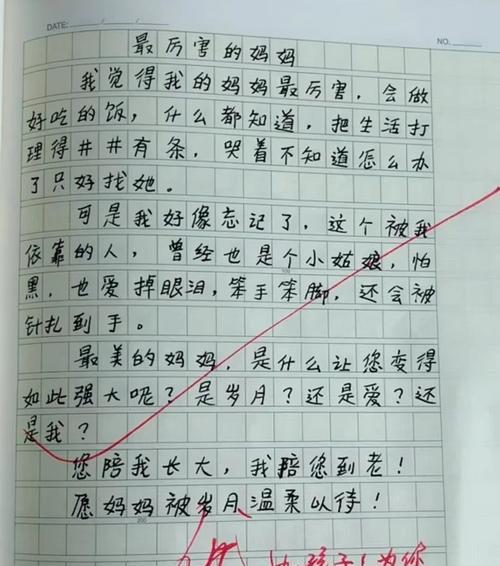 DATE:
NO.
最厉害的妈妈
我觉得我的妈妈最厉害，会做
好吃的饭，什么都知道，把生活打
理得井井有条，哭着不知道怎么办
了只好找她。
可是我好像忘记了，这个被我
依靠的人，曾经也是个小姑娘，怕
黑，也爱掉眼泪，笨手笨脚，还会被
针扎到手。
最美的妈妈，是什么让您变得
如此强大呢？是岁月？还是爱？还
是我？
您陪我长大，我陪您到老！
愿妈妈被岁月温柔以待！
200
孩子！为你